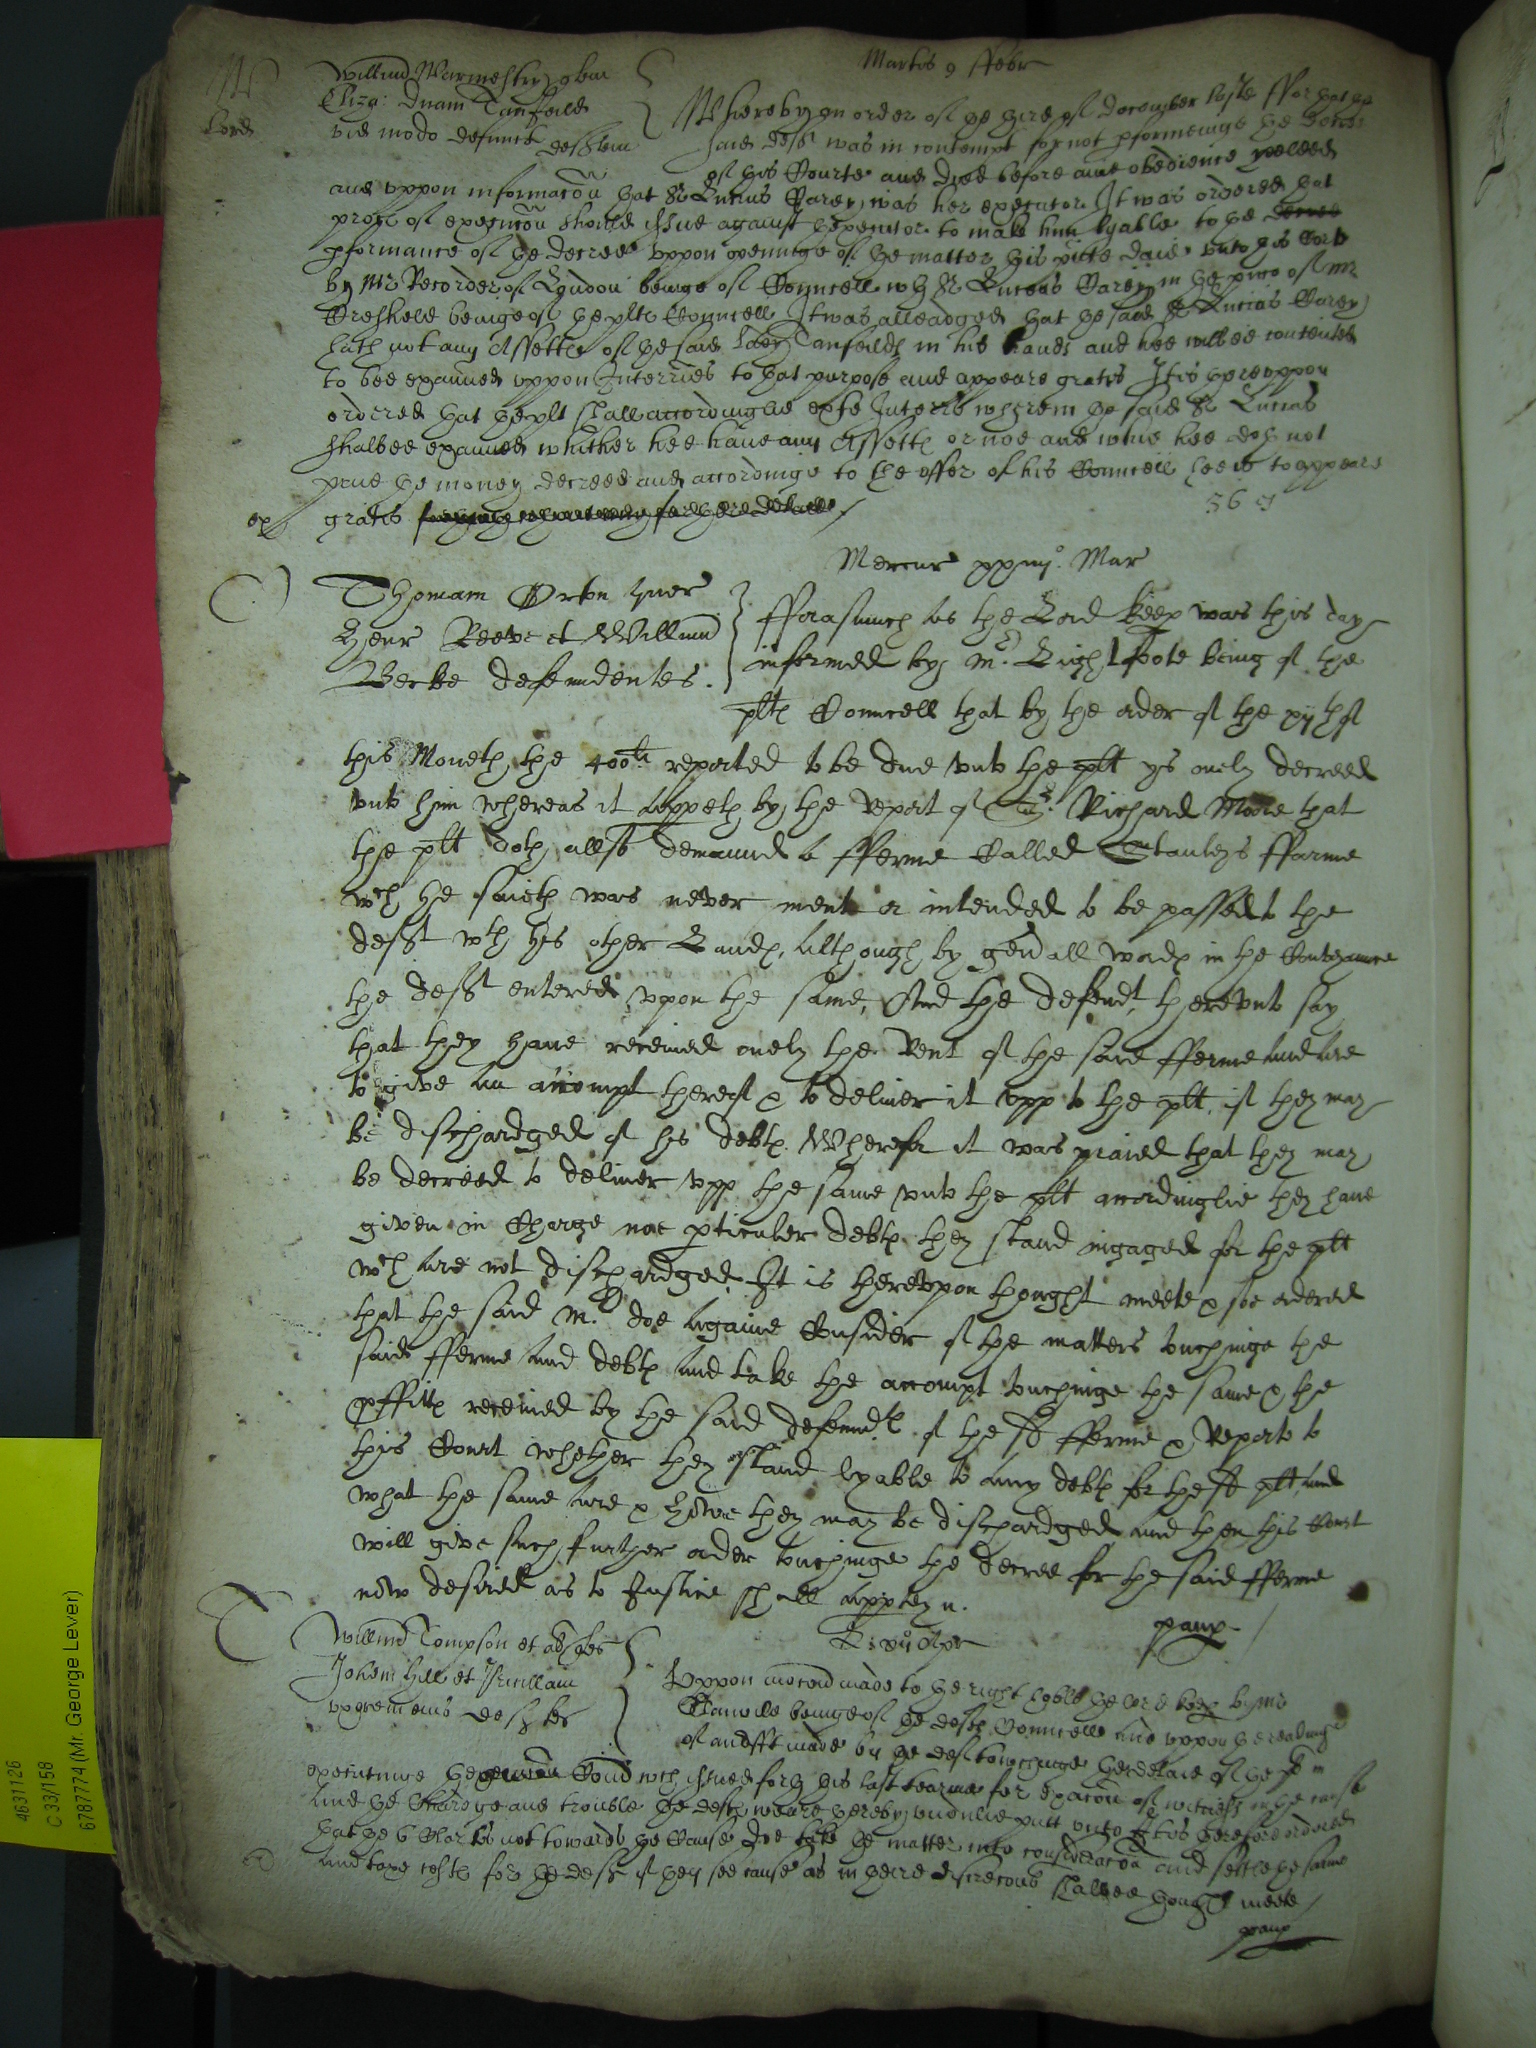 Martis 9 ffebr
W
Lord
Willmd Warmestry quer
Eliza: Dnam Tanfeild
vid modo defunct deftem
Whereby an order of the of December last ffor that the
said deft was in contempt for not pformeinge the decree
of this Courte and died before anie obedience yeelded
and vppon informacon that Sr Lucius Carey was her executor It was ordered that
proces of execucon should issue against thexecutor to make him lyable to the decree
pformance of the decree vppon openinge of the matter this pnte daie vnto this Corte
by Mr Recorder of London beinge of Councell wth Sr Lucius Carey in the pnce of Mr
Creshald beinge of the plts Councell It was alleadged that the said Sr Lucius Carey
hath not any Assetts of the said Lady Tanfeilds in his hands and hee wilbee contented
to bee exained vppon Interries to that purpose and appeare gratis It is therevppon
ordered that the plt shall accordinglie exhe Interrs wherein the said Sr Lucius
shalbee exained whither hee haue any Assetts or noe and whie hee doth not
paie the money decreed and accordinge to the offer of his Councell hee is to appeare
ex gratis
Mercur xxiiij. Mar
Thomam Orton quer
Henr Reeve et Willmd
Becke defendentes
fforasmuch as the Lord Keep was this day
informed by Mr. Lightfoote being of the
plts Councell that by the order of the xijth of
this Moneth the 400li reported to be due vnto the plt ys onely decreed
vnto him whereas it Appeth by the report of Sr. Richard Moore that
the plt doth allso demaund a fferme Called Stanleys ffarme
wch he saieth was never ment or intended to be passed to the
deft wth his other Lands, Although by genall words in the Conveyance
the deft entered vpon the same, And the defendt, therevnto say
that they haue receiued onely the Rent of the said fferme and are
to give an accompt thereof & to deliuer it vpp to the plt, if they may
be dischardged of his debts. Wherefor it was praied that they may
be decreed to deliuer vpp the same vnto the plt accordinglie they haue
given in Charge noe pticuler debts they stand ingaged for the plt
wch are not dischardged. It is therevpon thought meete & soe ordered
that the said Mr doe Againe Consider of the matters touchinge the
said fferme And debts And take the accompt touchinge the same & the
pffitts receiued by the said defendts of the sd fferme & Report to
this Court whether they stand lyable to any debts for the sd plt, and
what the same are & howe they may be dischardged and then this Court
will give such further order touchinge the decree for the said fferme
now desired as to Justice shall Apptey n.
paup
xij Apr
Willmd Tompson et al quer
Johem Hill et
vxorem eius defts
Vppon mocon made to the right hoble the Lord Keep by Mr
beinge of the defts Councell and vppon the readinge
of an afft made by the deft towchinge the delaie of the plt in
executinge the Comd wch issued forth this last tearme for exacon of witnesses in the cause
And the Chardge and trouble the defts weare thereby vnduelie putt vnto It is therefore ordered
that the 6 Clarks not towards the Cause doe take the matter into consideracon and settle the same
And taxe costs for the deft if they see cause as in theire discrecons shalbee thought meete
paup
4631126
C 33/158
6787774 (Mr. George Lever)